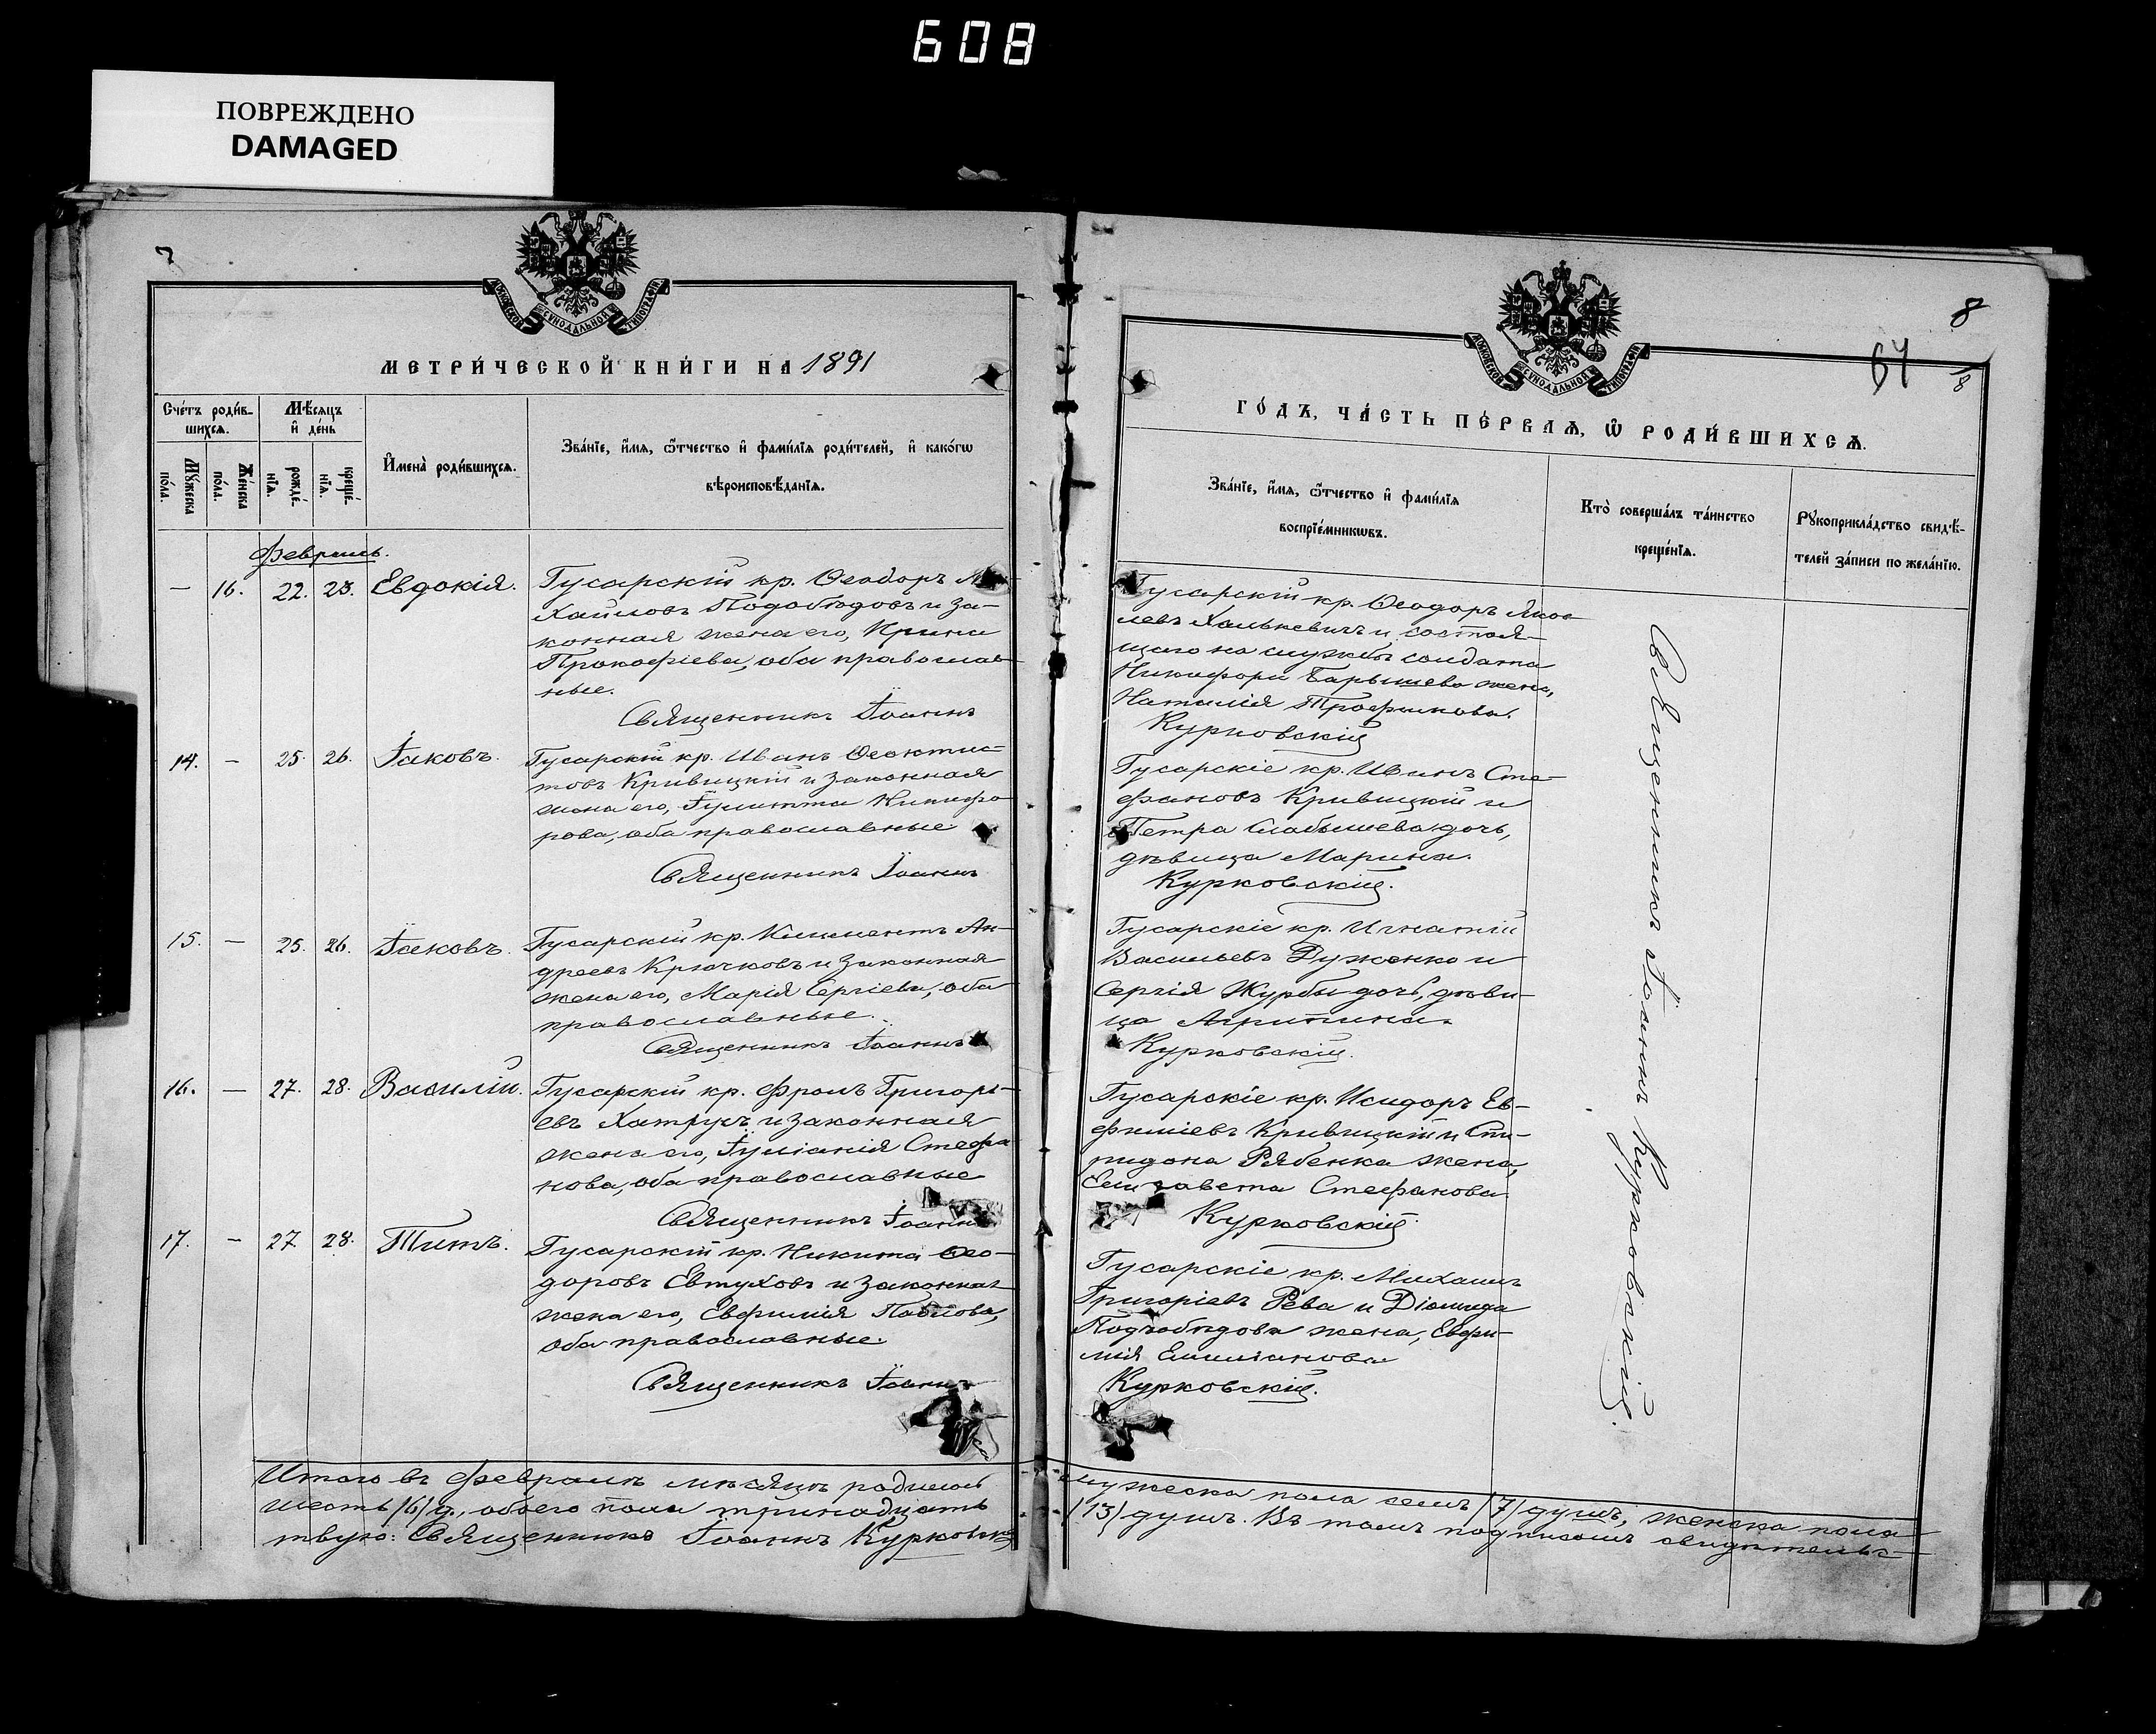 608
ПОВРЕЖДЕНО
DAMAGED
7
МОСКОВСКОЙ СѴНОДАЛЬНОЙ ТИПОГРАФІИ
МЕТРИ́ЧЕСКОЙ КНИ́ГИ НА 1891
Сче́тъ роди́в-
шихсѧ.
Мѣ́сѧцъ
и҆ де́нь
Мꙋ́жеска
по́ла.
Же́нска
по́ла.
рожде́-
нїѧ.
креще́-
нїѧ.
И҆мена̀ роди́вшихсѧ.
Зва́нїе, и҆́мѧ, ѻ҆́тчество и҆ фами́лїѧ роди́телей, и҆ како́гѡ
вѣроисповѣ́данїѧ.
Февраль.
— 16. 22. 23. Евдокія. Гусарскій кр. Ѳеодоръ Ми-
хайловъ Подоблюдовъ и за-
конная жена его, Ирина
Прокофіева, оба православ-
ные.
Священникъ Іоаннъ
14. — 25. 26. Іаковъ. Гусарскій кр. Иванъ Ѳеоктис-
товъ Кривицкій и законная
жена его, Іулитта Никифо-
рова, оба православные
Священникъ Іоаннъ
15. — 25. 26. Іаковъ. Гусарскій кр. Климентъ Ан-
дреевъ Крючковъ и законная
жена его, Марія Сергіева, оба
православные.
Священникъ Іоаннъ
16. — 27. 28. Василій. Гусарскій кр. Фролъ Григорь-
евъ Хатрукъ и законная
жена его, Іуліанія Стефа
нова, оба православные
Священникъ Іоаннъ
17. — 27. 28. Титъ. Гусарскій кр. Никита Ѳео-
доровъ Евтуховъ и законная
жена его, Евфимія Павлова,
оба православные.
Священникъ Іоаннъ
Итого въ Февралѣ мѣсяцѣ родилось
шесть /6/ д., обоего пола тринадцать
твую: Священникъ Іоаннъ Курковскій
8
64
18
МОСКОВСКОЙ СѴНОДАЛЬНОЙ ТИПОГРАФІИ
ГО́ДЪ, ЧА́СТЬ ПЕ́РВАѦ, Ѡ҆ РОДИ́ВШИХСѦ.
Зва́нїе, и҆́мѧ, ѻ҆́тчество и҆ фами́лїѧ
воспрїе́мникѡвъ.
Кто̀ соверша́лъ та́инство
креще́нїѧ.
Рꙋкоприкла́дство свидѣ́-
телей за́писи по жела́нїю.
Гусарскій кр. Ѳеодоръ Яков
левъ Халькевичъ и состоя-
щаго на службѣ солдата
Никифора Барышева жена,
Наталія Трофимова.
Курковскій
Гусарскіе кр. Иванъ Сте-
фановъ Кривицкій и
Петра Слабышева дочь,
дѣвица Марина.
Курковскій.
Гусарскіе кр. Игнатій
Васильевъ Дуженко и
Сергія Журбы дочь, дѣви-
ца Агрипина.
Курковскій.
Гусарскіе кр. Исидоръ Ев-
фиміевъ Кривицкій и Спи-
ридона Рябенка жена,
Елизавета Стефанова
Курковскій.
Гусарскіе кр. Михаилъ
Григоріевъ Рева и Діомида
Подоблюдова жена, Евфи-
мія Емиліанова
Курковскій.
Священникъ Іоаннъ Курковскій.
мужеска пола семь /7/ душъ, женска пола
/13/ душъ. Въ томъ подписомъ свидѣтельс-